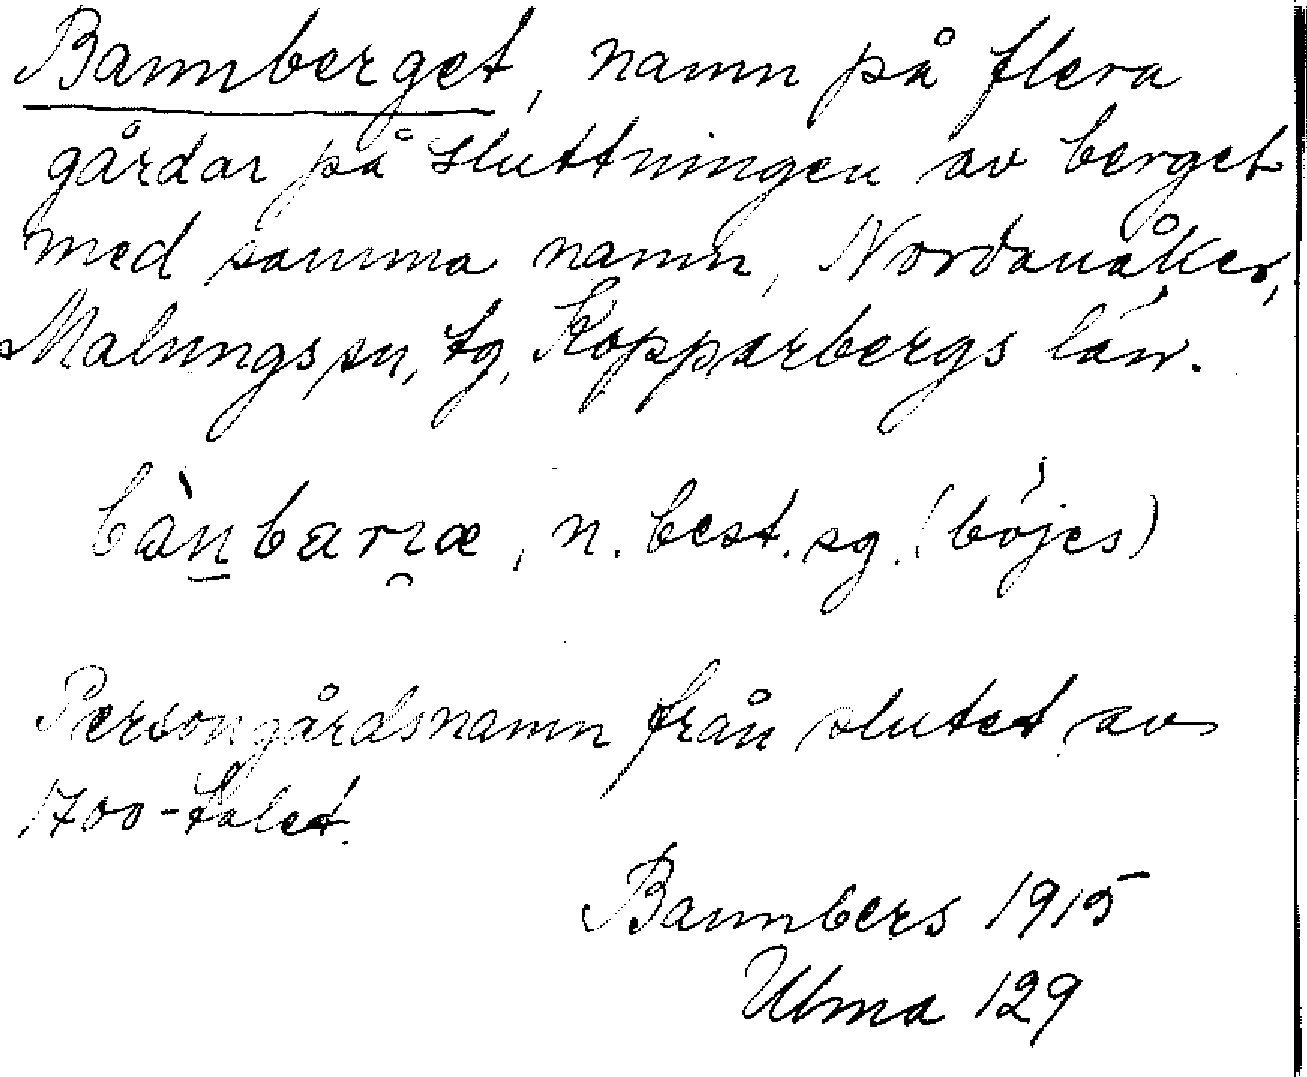 Bannberget, namn på flera
gårdar på sluttningen av berget
med samma namn, Nordanåker,
Malungs sn, tg, Kopparbergs län.
bànbarıæ, n. best. sg. (böjes)
Persongårdsnamn från slutet av
1700-talet.
Bannbers 1915
Ulma 129